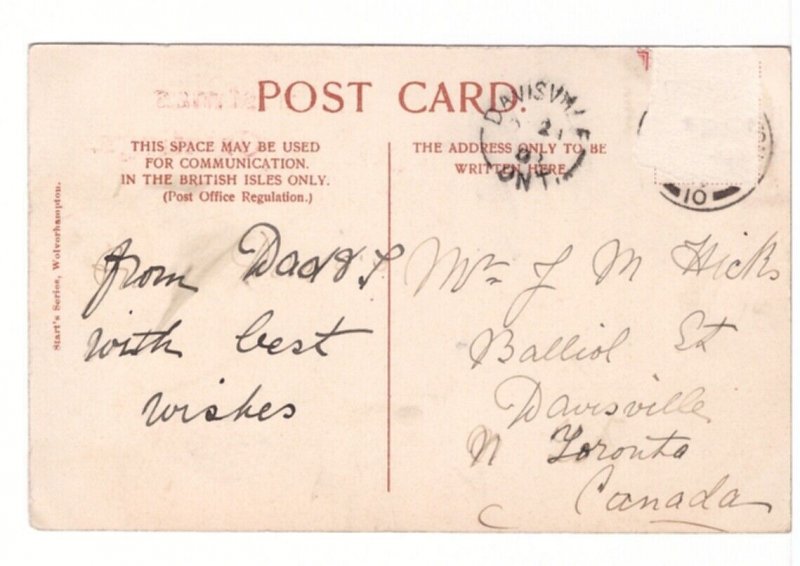 POST CARD.
THIS SPACE MAY BE USED
FOR COMMUNICATION.
IN THE BRITISH ISLES ONLY.
(Post Office Regulation.)
THE ADDRESS ONLY TO BE
WRITTEN HERE
DAVISVILLE
21
ONT.
10
Start's Series, Wolverhampton.
from Dad &
with best
wishes
Mr J M Hicks
Balliol St
Davisville
N Toronto
Canada